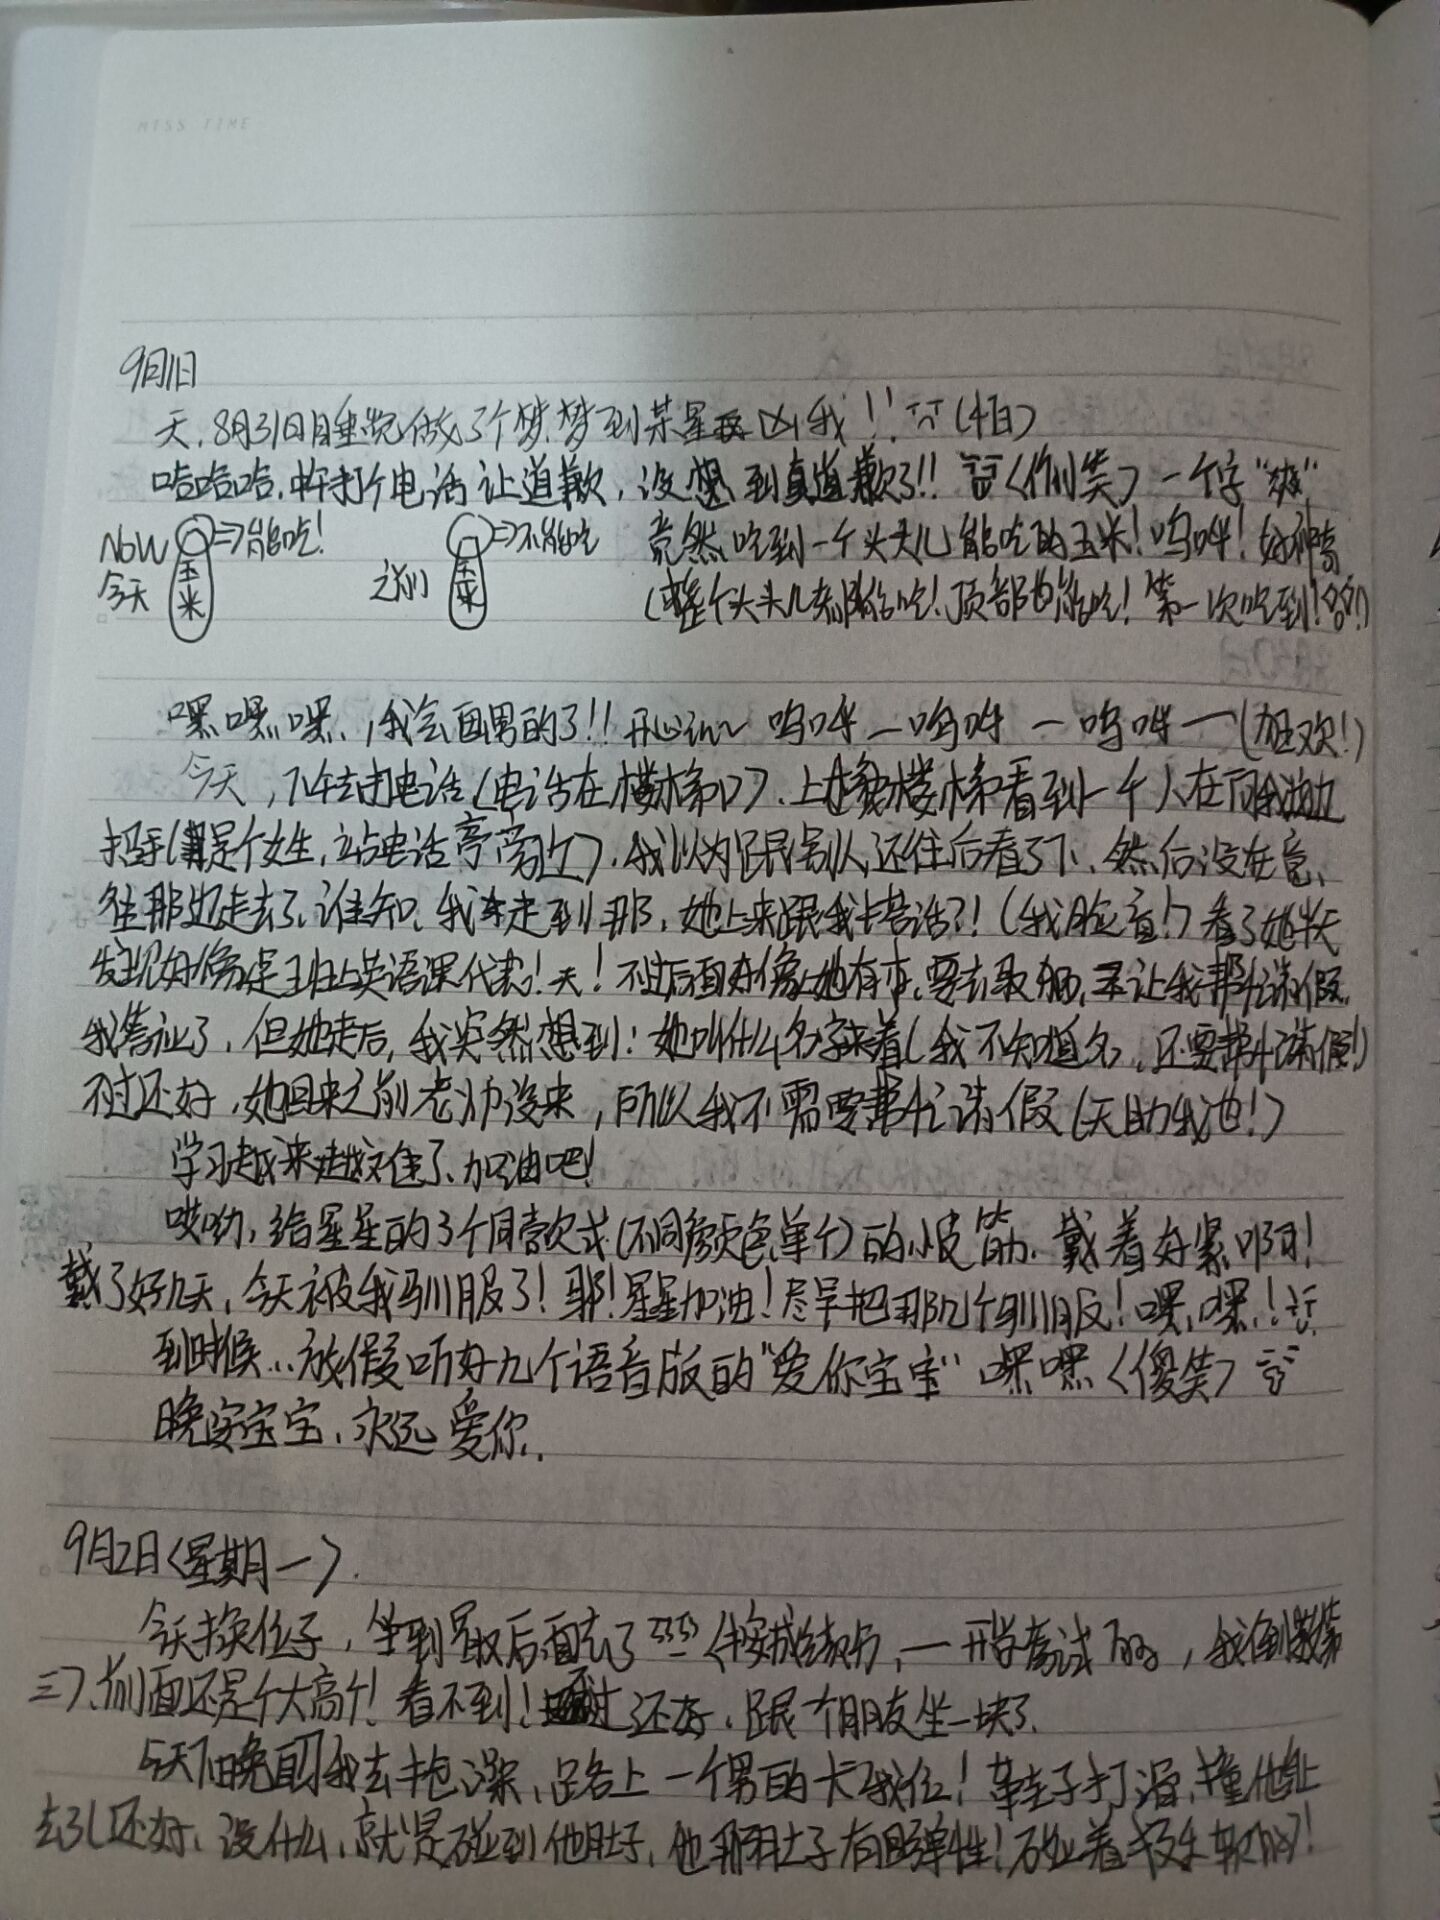 MISS TIME
9月1日
天,8月31日睡觉做了个梦,梦到某星凶我!!(怕)
哈哈哈,中午打个电话让道歉,没想到真道歉了!!〈偷笑〉一个字"爽"
NOW ⇒能吃! ⇒不能吃 竟然吃到一个头头儿能吃的玉米!呜呼!好神奇
今天 玉米 之前 玉米 (整个头头儿都能吃!顶部也能吃!第一次吃到!)
嘿嘿嘿,我会画男的了!!开心 呜呼—呜呼—呜呼—(狂欢!)
今天,下午去打电话(电话在楼梯口),上楼梯看到一个人在向我这边
招手(是个女生,站电话亭旁边),我以为跟别人,还往后看了下,然后没在意,
往那边走去了,谁知,我走到那,她上来跟我搭话?!(我脸盲!)看了她半天
发现好像是班上英语课代表!天!不过后面好像她有事,要去取,让我帮忙请假,
我答应了,但她走后,我突然想到:她叫什么名字来着(我不知道名,还要帮忙请假!)
不过还好,她回来之前老师没来,所以我不需要帮忙请假(天助我也!)
学习越来越难了,加油吧!
哎呦,给星星的3个同款式(不同颜色单个)的小皮筋,戴着好紧啊!
戴了好几天,今天被我驯服了!耶!星星加油!尽早把那几个驯服!嘿,嘿,!
到时候…放假听好几个语音版的"爱你宝宝"嘿嘿〈傻笑〉
晚安宝宝,永远爱你.
9月2日〈星期一〉.
今天换位子,坐到最后面去了〈按成绩的,—开学考试的,我倒数第
三〉,前面还是个大高个!看不到!还好,跟个朋友坐一块了.
今天晚自习我去抱,路上一个男的卡我位!鞋子打滑,撞他肚
去了(还好,没什么,就是碰到他肚子,他那肚子有弹性!碰着软的?!